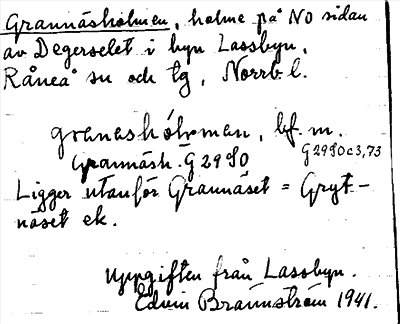 Grannäsholmen, holme på NO sidan
av Degerselet i byn Lassbyn,
Råneå sn och tg, Norrb l.
granasholman, bf. m.
Grannäsh. G 2980 G2980c3,73
Ligger utanför Grannäset = Gryt-
näset ek.
Uppgiften från Lassbyn.
Edvin Brännström 1941.